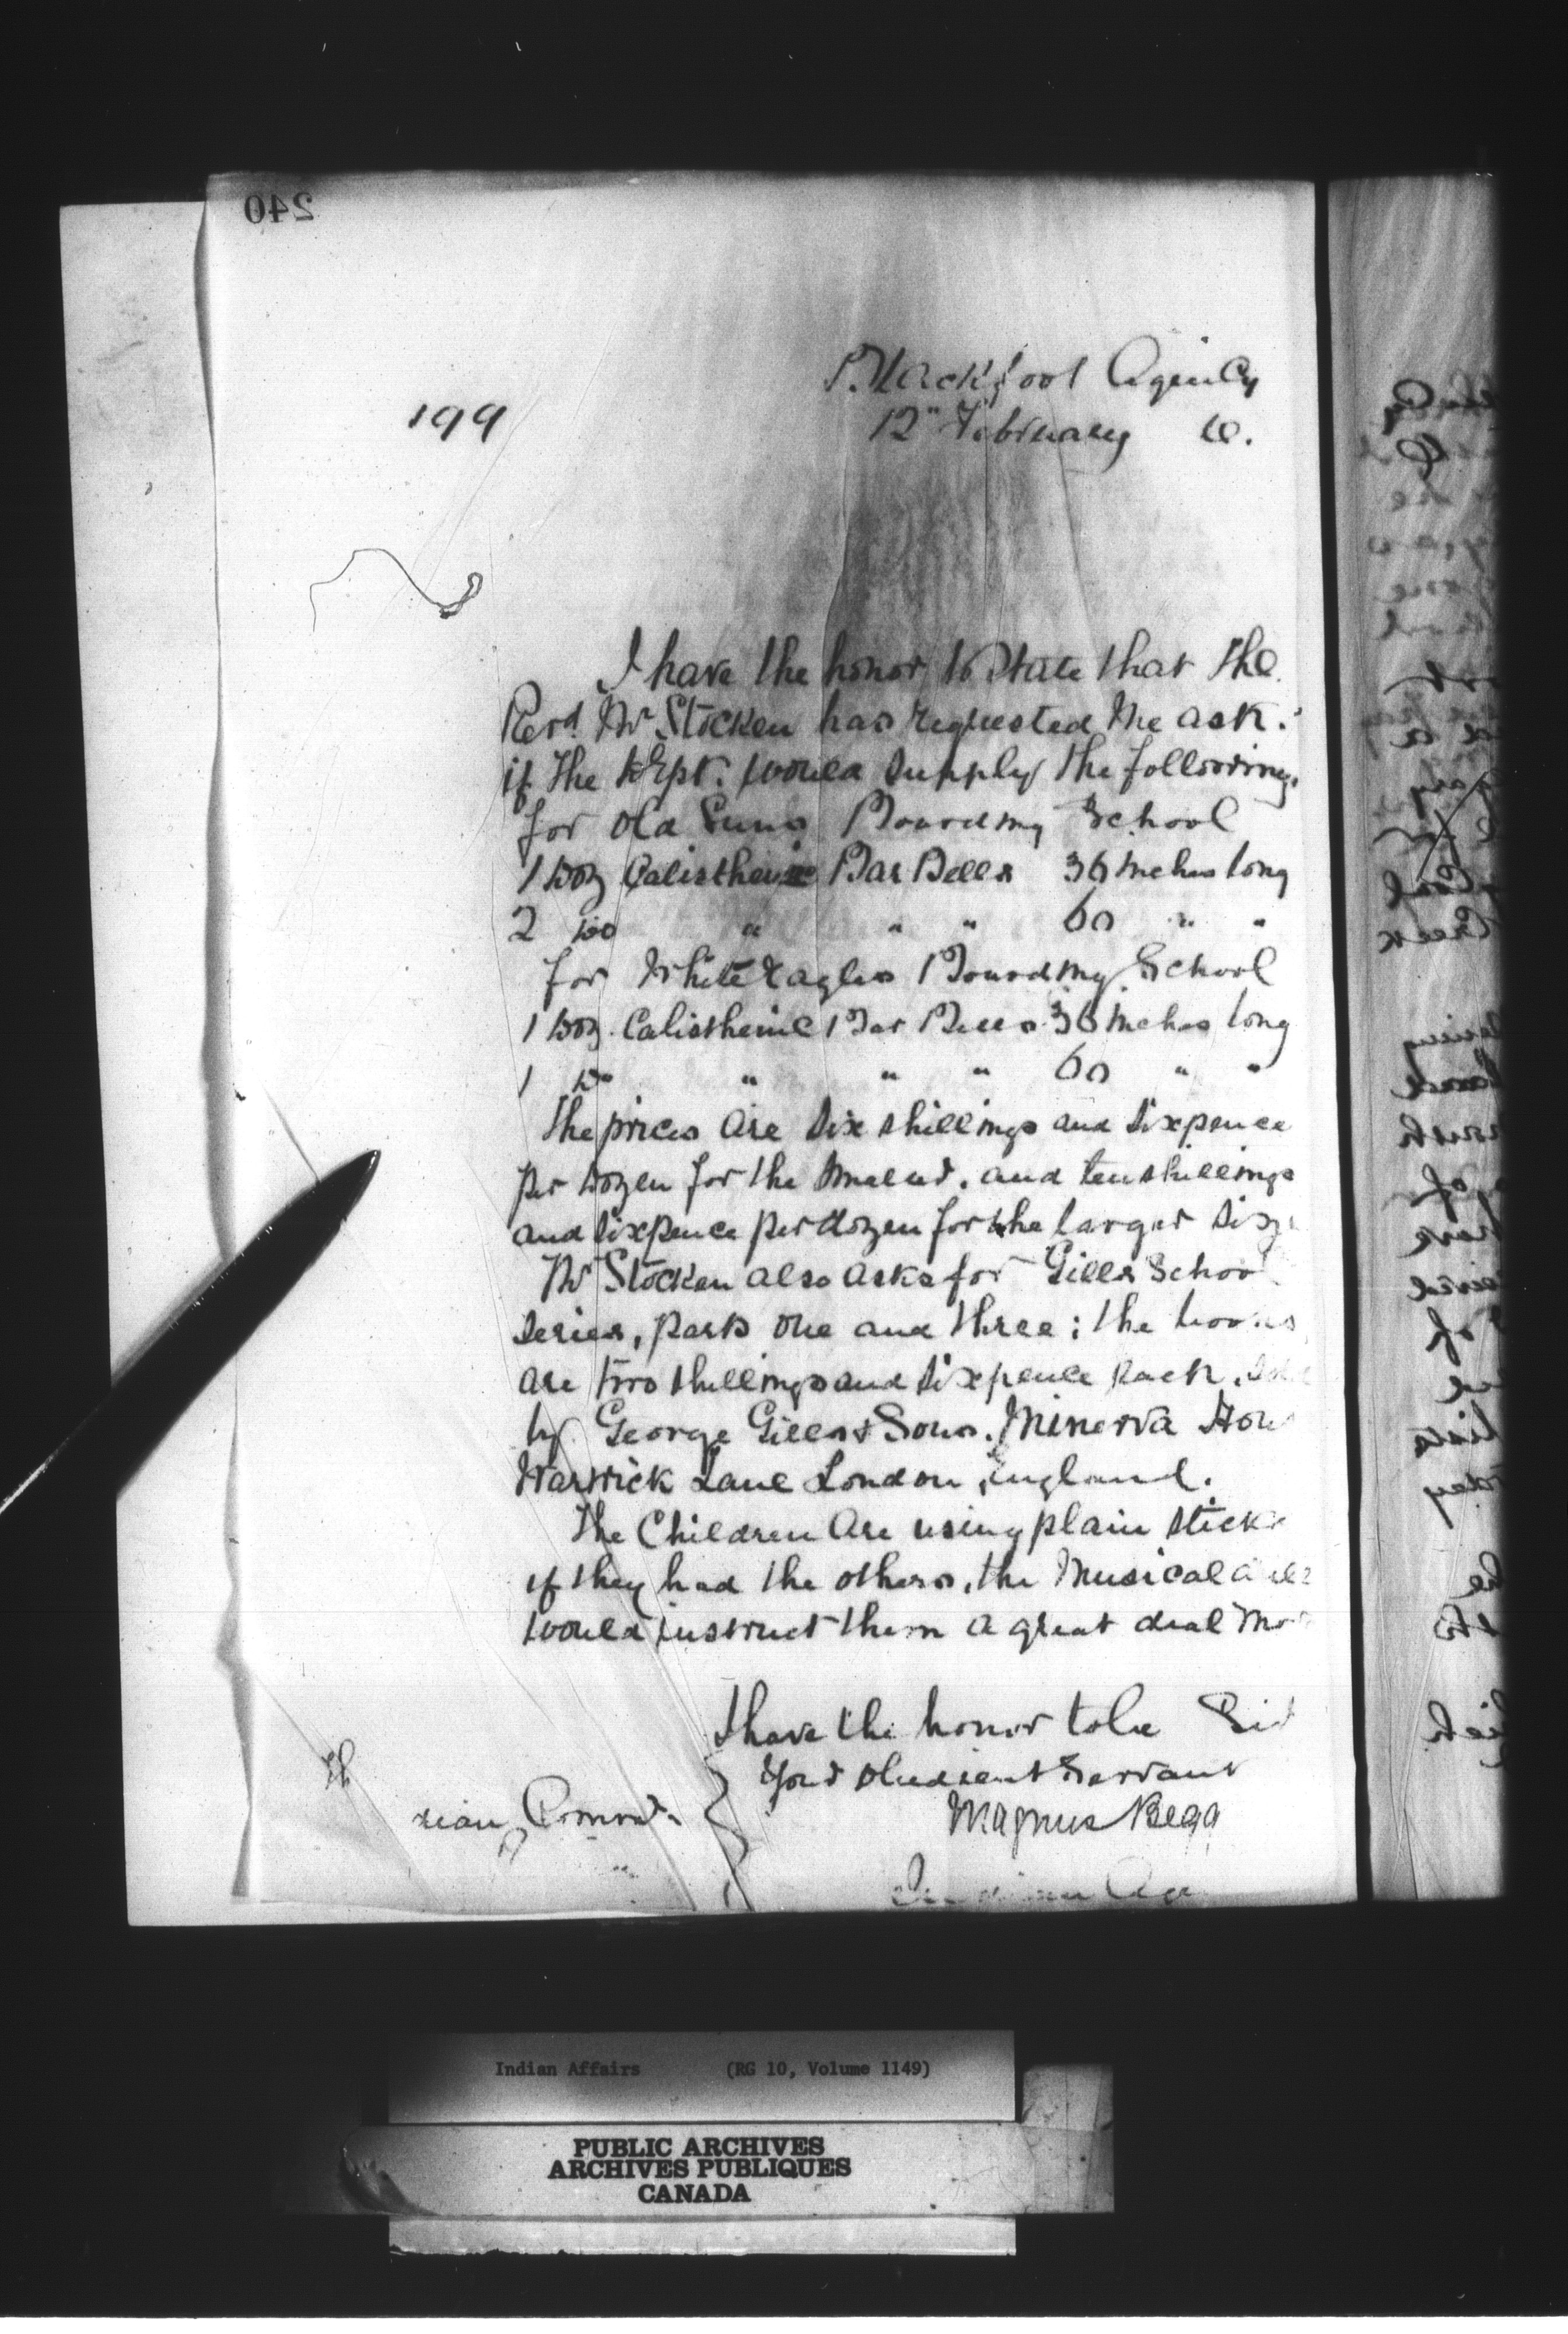 240
Blackfoot Agency
199
12" February
I have the honor to state that the
Revd. Mr Stocken has requested me ask
if the Dept. would supply the following.
for Old Suns Boarding School
1 Doz Calisthenic Bar Bells 36 inches long
2 Do " " " 60 " "
for White Eagles Boarding School
1 Doz. Calisthenic Bar Bells 36 inches long
1 Do " " " 60 " "
The prices are six shillings and sixpence
per dozen for the and ten shillings
and sixpence per dozen for the larger size
Mr Stocken also asks for Gills School
series, parts one and three; the books
are two shillings and sixpence each.
by George Gill & Sons. Minerva Hou
Warwick Lane London England.
The Children are using plain sticks
if they had the others, the Musical
would instruct them a great deal mor
I have the honor to be Sir
Your obedient Servant
Magnus Begg
Indian Age
Indian Affairs (RG 10, Volume 1149)
PUBLIC ARCHIVES
ARCHIVES PUBLIQUES
CANADA